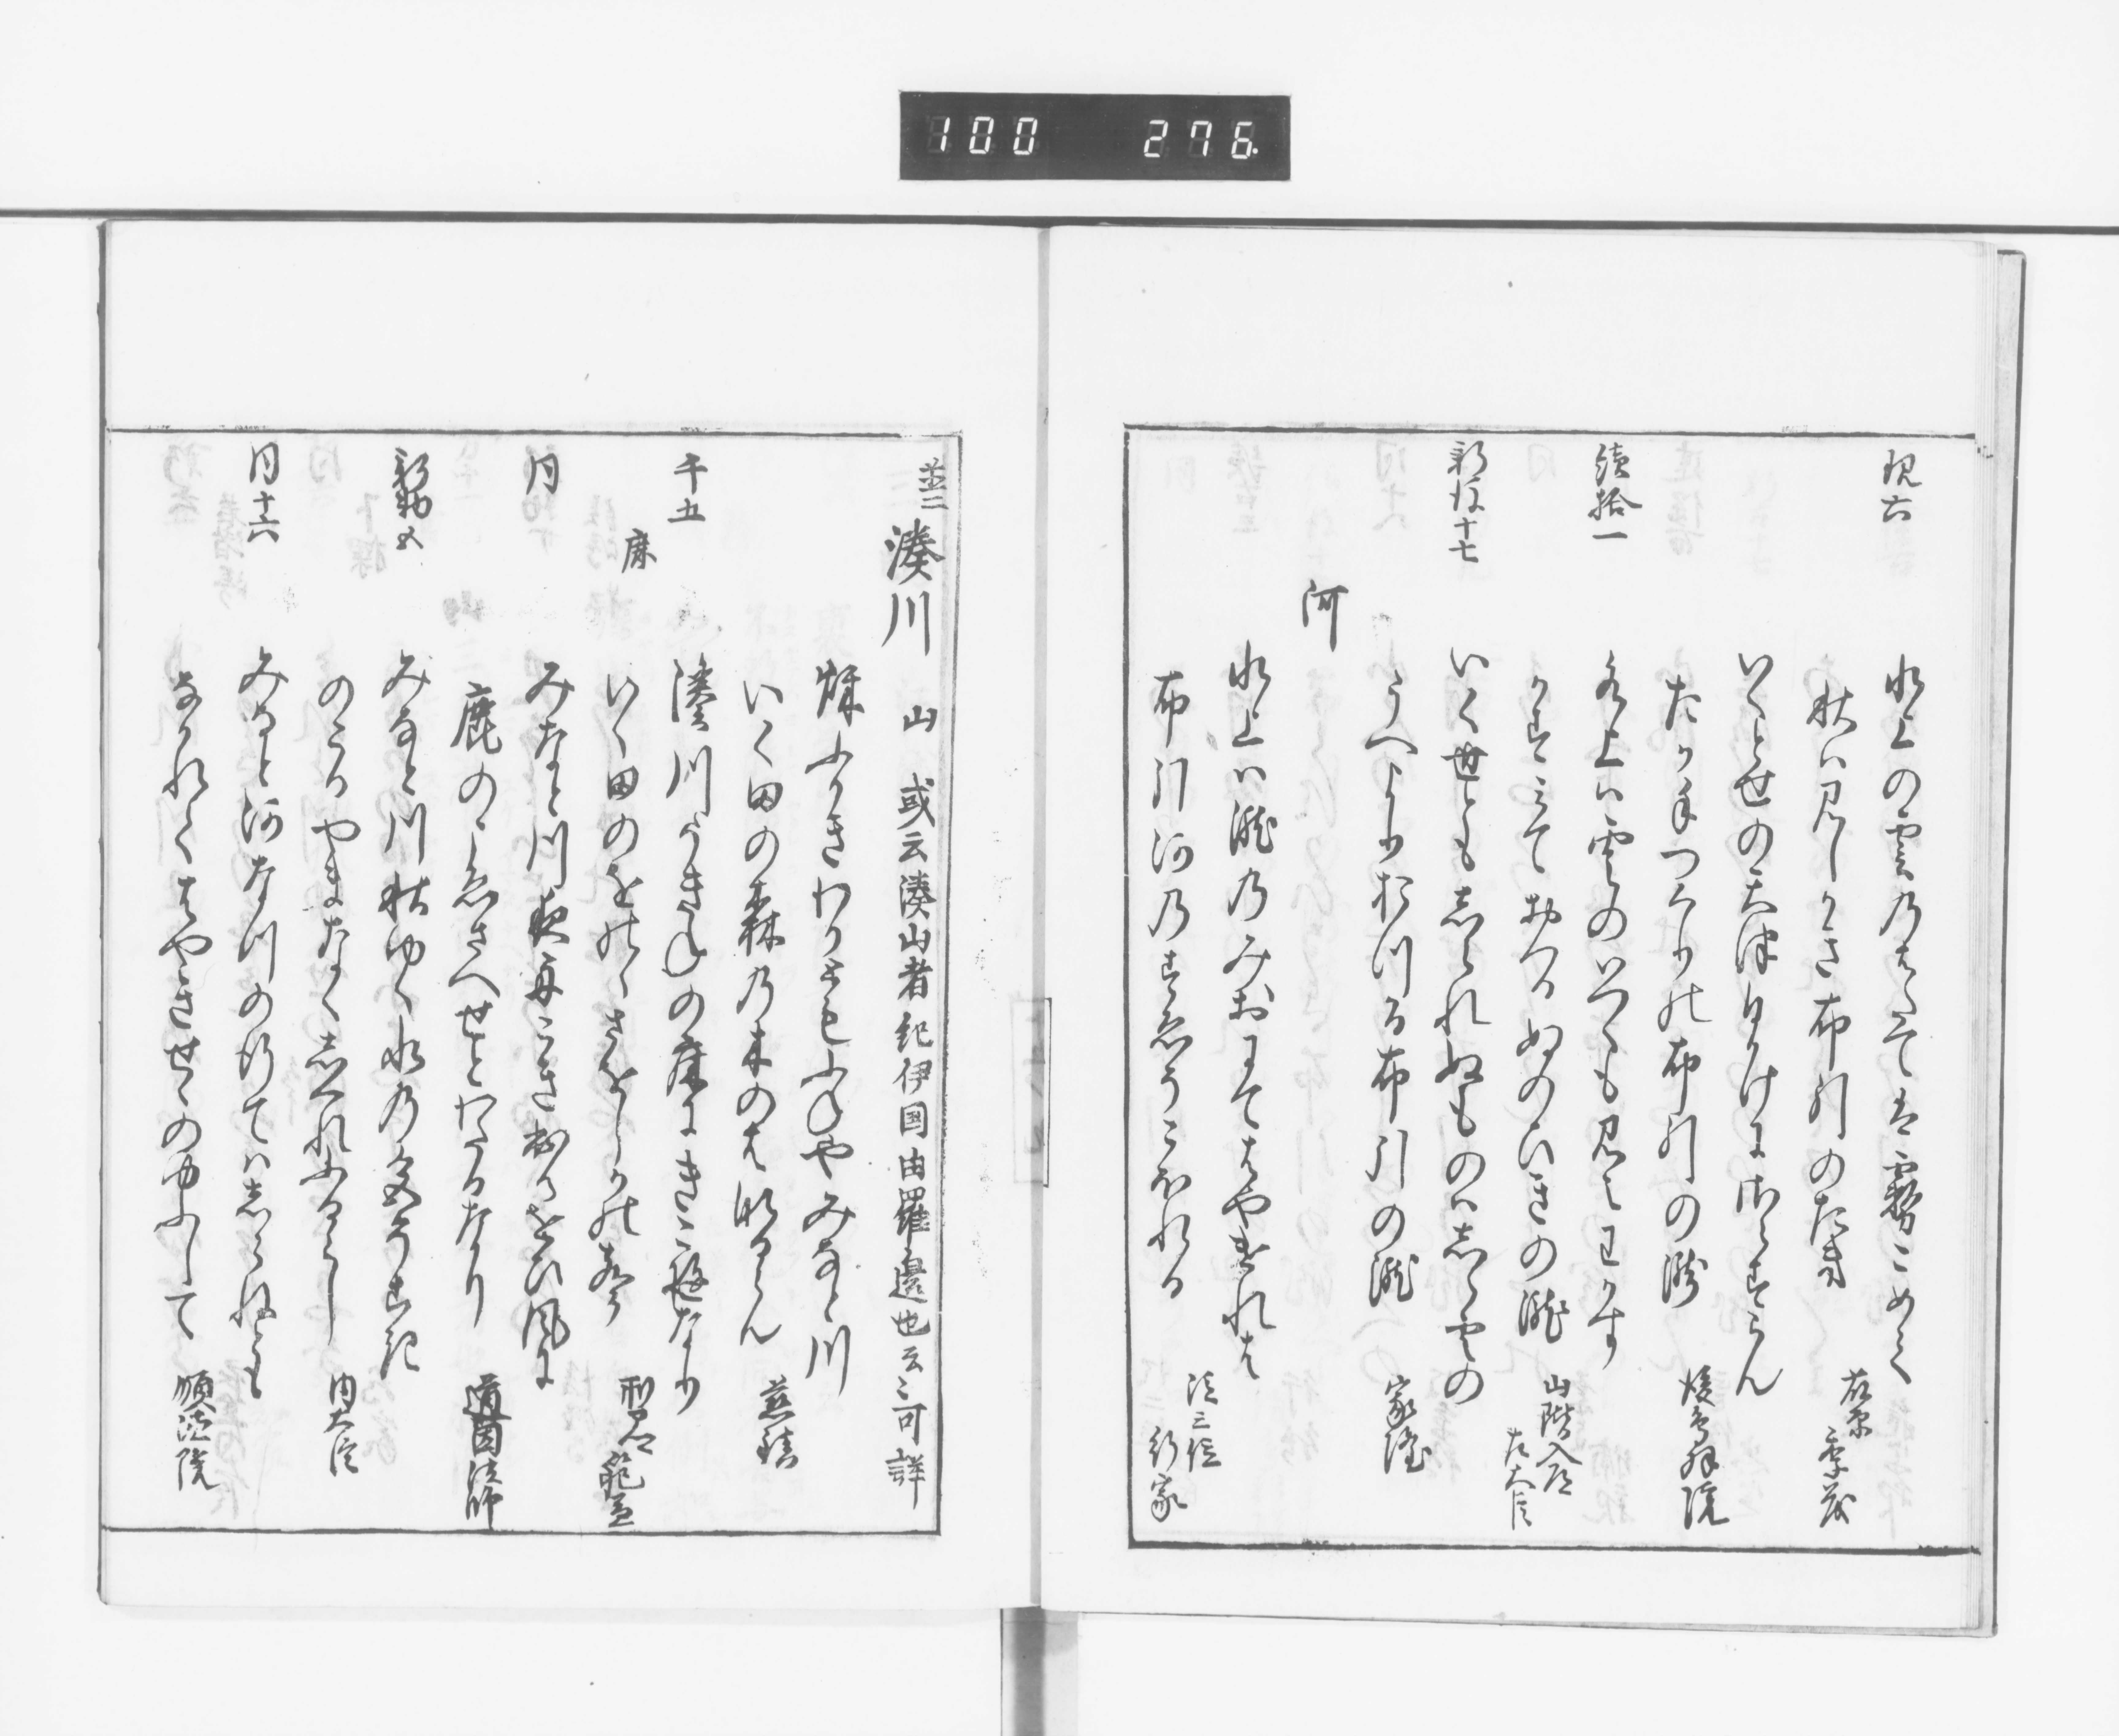 100 276.
現六
水上の雲乃はたては霧こめて
秋は見しかき布引のたき
藤原季茂
いくとせの天津日かけにさらすらん
たか手つくりの布引の瀧
後鳥羽院
続拾一
水上は雲のいつくも見えわかす
かすみておつるぬのひきの瀧
山階入道左大臣
新後十七
いく世ともしられぬものはしら雲の
うへよりおつる布引の瀧
家隆
河
水上は瀧乃みおにてはやけれは
布引河乃すゑうこほれる
従三位行家
並二
湊川
山 或云湊山者紀伊国由羅邊也云々可詳
ふかき
みなと川
いく田の森乃木のは
慈鎮
千五
麻
湊川うきねの床にきこゆなり
いく田のおくのさをしかの声
刑部卿範兼
同
みなと川夜舟こき出るをひ風に
鹿のこゑさへせとわたるなり
道因法師
新勅五
みなと川秋ゆく水の色そこき
のこるやまなくしくれふるらし
内大臣
同十六
みなと河なつの行てはしらねとも
なかれてはやきせゝのゆふして
順徳院